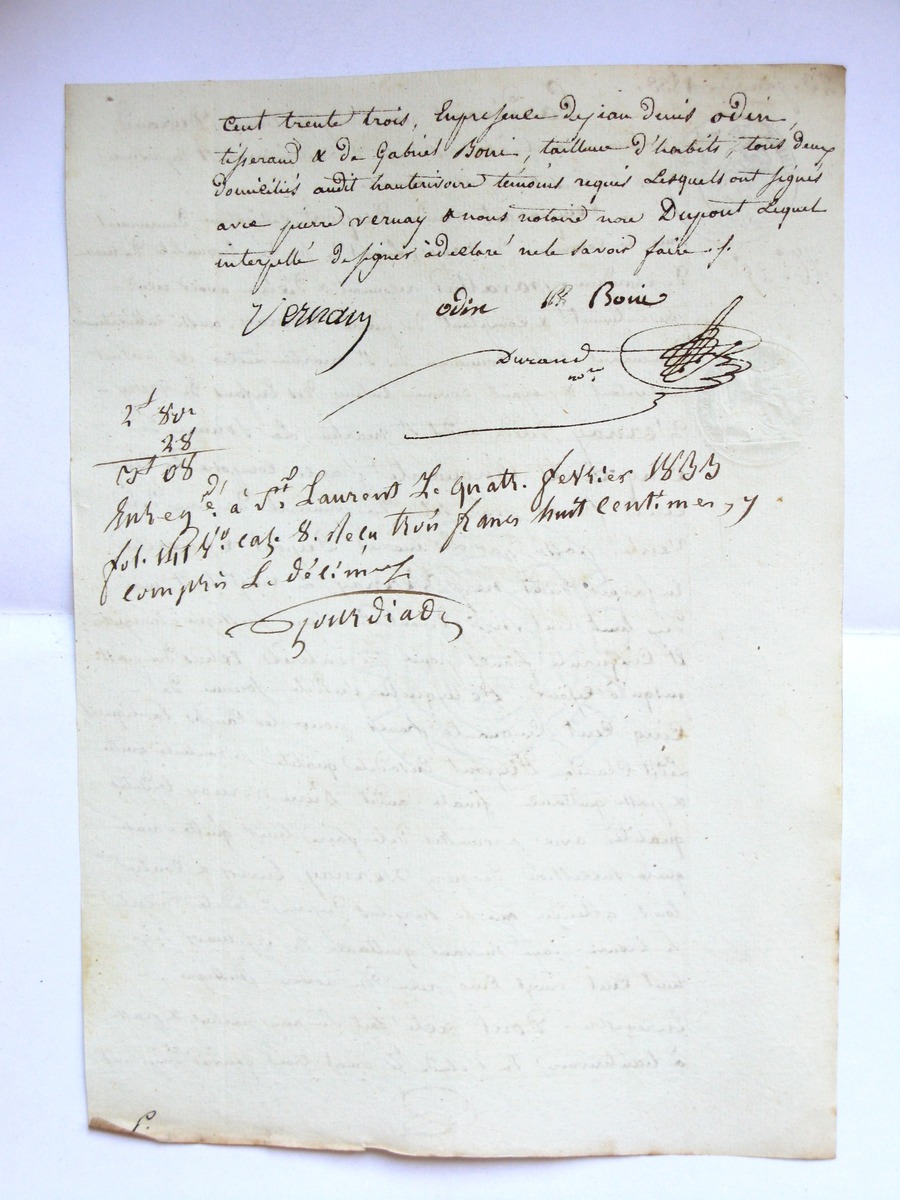 Cent trente trois, En presence de jean denis odin,
tisserand & de Gabriel Boni, tailleur d'habits, tous deux
domiciliés audit hauterivoire témoins requis Lesquels ont signés
avec pierre vernay & nous notaire non Dupont Lequel
interpellé de signer à declaré ne le savoir faire ./.
Vernay odin Boni
Durand
nre
2f 80c
28
3f 08
Enregé. à St. Laurent Le quatre fevrier 1833
fol. 141 Vo. caz. 8. Reçu trois francs huit centimes, y
compris Le décime
Gourdiad
P.